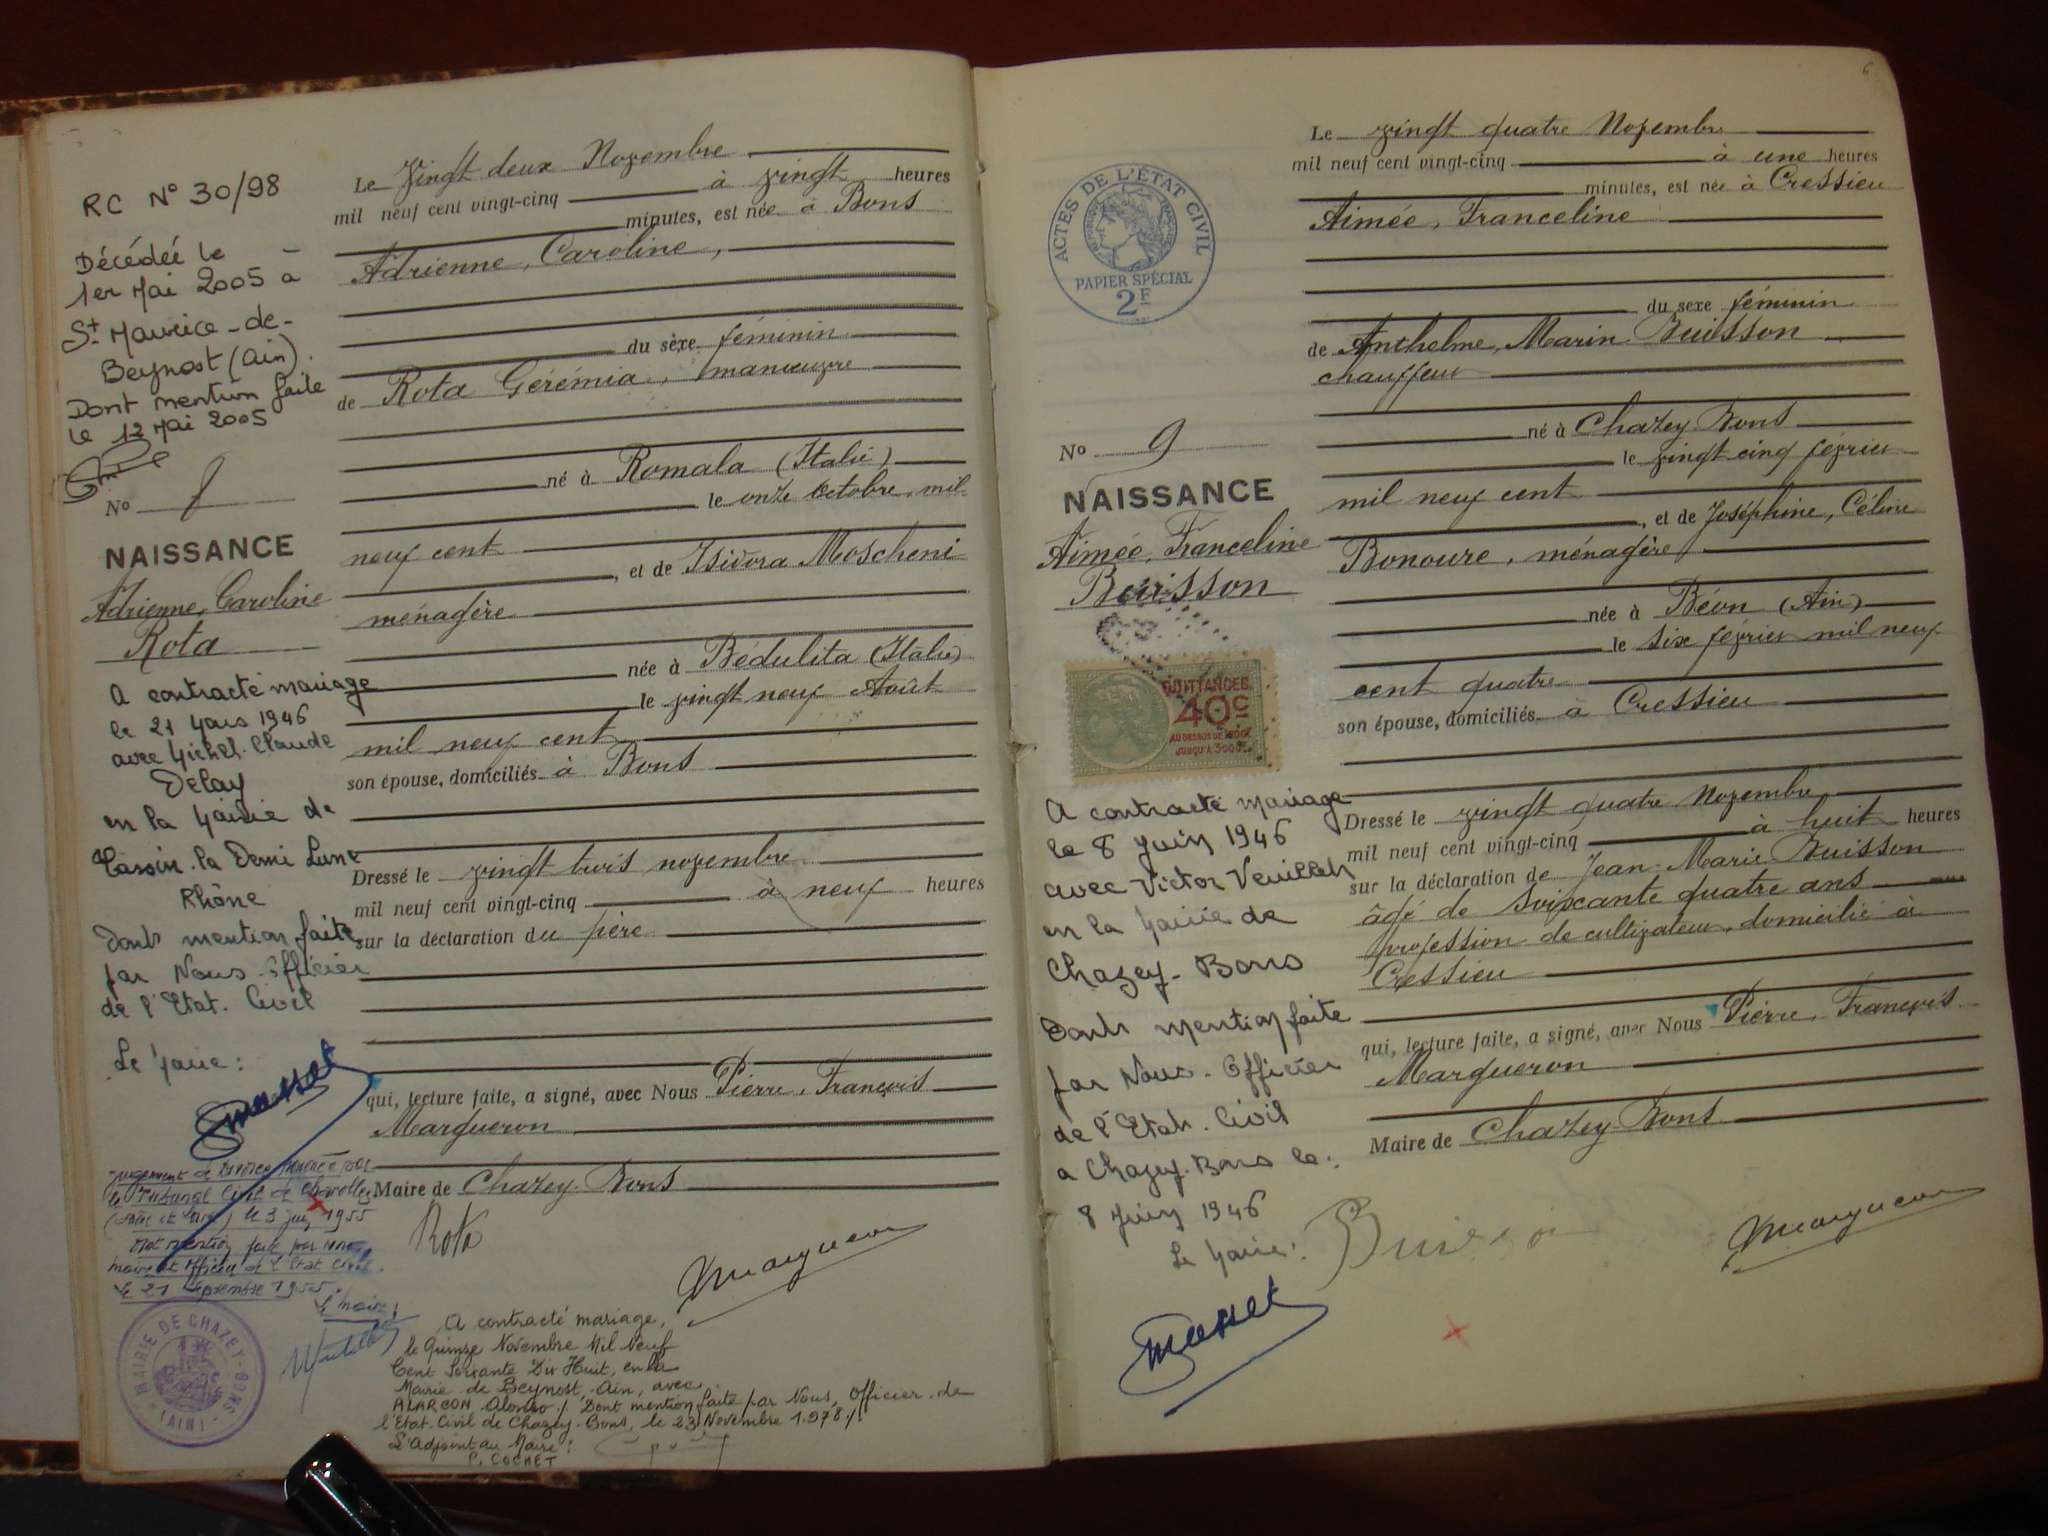 RC N° 30/98
Décédée le
1er Mai 2005 à
St Maurice-de-
Beynost (Ain).
Dont mention faite
le 12 Mai 2005
No 8
NAISSANCE
Adrienne, Caroline
Rota
A contracté mariage
le 21 Mars 1946
avec Michel. Claude
Delay
en la Mairie de
Tassin. la Demi Lune
Rhône
Dont mention faite
par Nous. Officier
de l'Etat. Civil
Le Maire:
Jugement de Divorce prononcé par
le Tribunal Civil de Charolles
le 3 juin 1955
Dont mention faite par nous
maire et Officier de l'Etat Civil.
Le 21 Septembre 1955.
Le maire:
MAIRIE DE CHAZEY-BONS
(AIN)
Le vingt deux Novembre
mil neuf cent vingt-cinq à vingt heures
minutes, est née à Bons
Adrienne, Caroline,
du sexe féminin
de Rota Gérémia, manœuvre
né à Romala (Italie)
le onze octobre mil
neuf cent
, et de Isidora Moscheni
ménagère
née à Bédulita (Italie)
le vingt neuf Août
mil neuf cent
son épouse, domiciliés à Bons
Dressé le vingt trois novembre
mil neuf cent vingt-cinq à neuf heures
sur la déclaration du père
qui, lecture faite, a signé, avec Nous Pierre, François
Margueron
Maire de Chazey-Bons
Rota
Margueron
A contracté mariage,
le Quinze Novembre Mil Neuf
Cent Soixante Dix Huit, en la
Mairie de Beynost, Ain, avec
ALARCON Alonso ./. Dont mention faite par Nous, Officier de
l'Etat. Civil de Chazey-Bons, le 23 Novembre 1.978 ./.
L'Adjoint au Maire:
P. COCHET
6
ACTES DE L'ÉTAT CIVIL
PAPIER SPÉCIAL
2F
No 9
NAISSANCE
Aimée, Franceline
Buisson
QUITTANCES
40c
AU DESSUS DE 1000F
JUSQU'A 3000F
A contracté mariage
le 8 Juin 1946
avec Victor Veuillet
en la Mairie de
Chazey-Bons
Dont mention faite
par Nous. Officier
de l'Etat. Civil
a Chazey-Bons le:
8 Juin 1946
Le Maire:
Le vingt quatre Novembre
mil neuf cent vingt-cinq à une heures
minutes, est née à Cressieu
Aimée, Franceline
du sexe féminin
de Anthelme, Marin Buisson
chauffeur
né à Chazey-Bons
le vingt cinq février
mil neuf cent
, et de Joséphine, Céline
Bonoure, ménagère
née à Béon (Ain)
le six février mil neuf
cent quatre
son épouse, domiciliés à Cressieu
Dressé le vingt quatre Novembre
mil neuf cent vingt-cinq à huit heures
sur la déclaration de Jean-Marie Buisson
âgé de soixante quatre ans
profession de cultivateur, domicilié à
Cressieu
qui, lecture faite, a signé, avec Nous Pierre, François
Margueron
Maire de Chazey-Bons
Buisson
Margueron